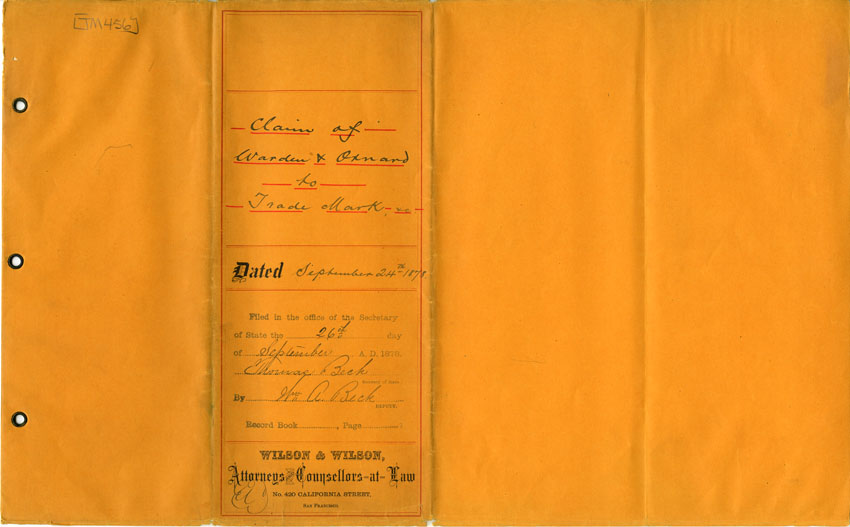 [TM456]
Claim of
Warden & Oxnard
to
Trade Mark
Dated September 24th 1878
Filed in the office of the Secretary
of State the 26th day
of September A. D. 1878.
Thomas Beck
Secretary of State
By Wm A. Beck
DEPUTY.
Record Book ............, Page ............
WILSON & WILSON,
Attorneys and Counsellors-at-Law
No. 420 CALIFORNIA STREET,
SAN FRANCISCO.